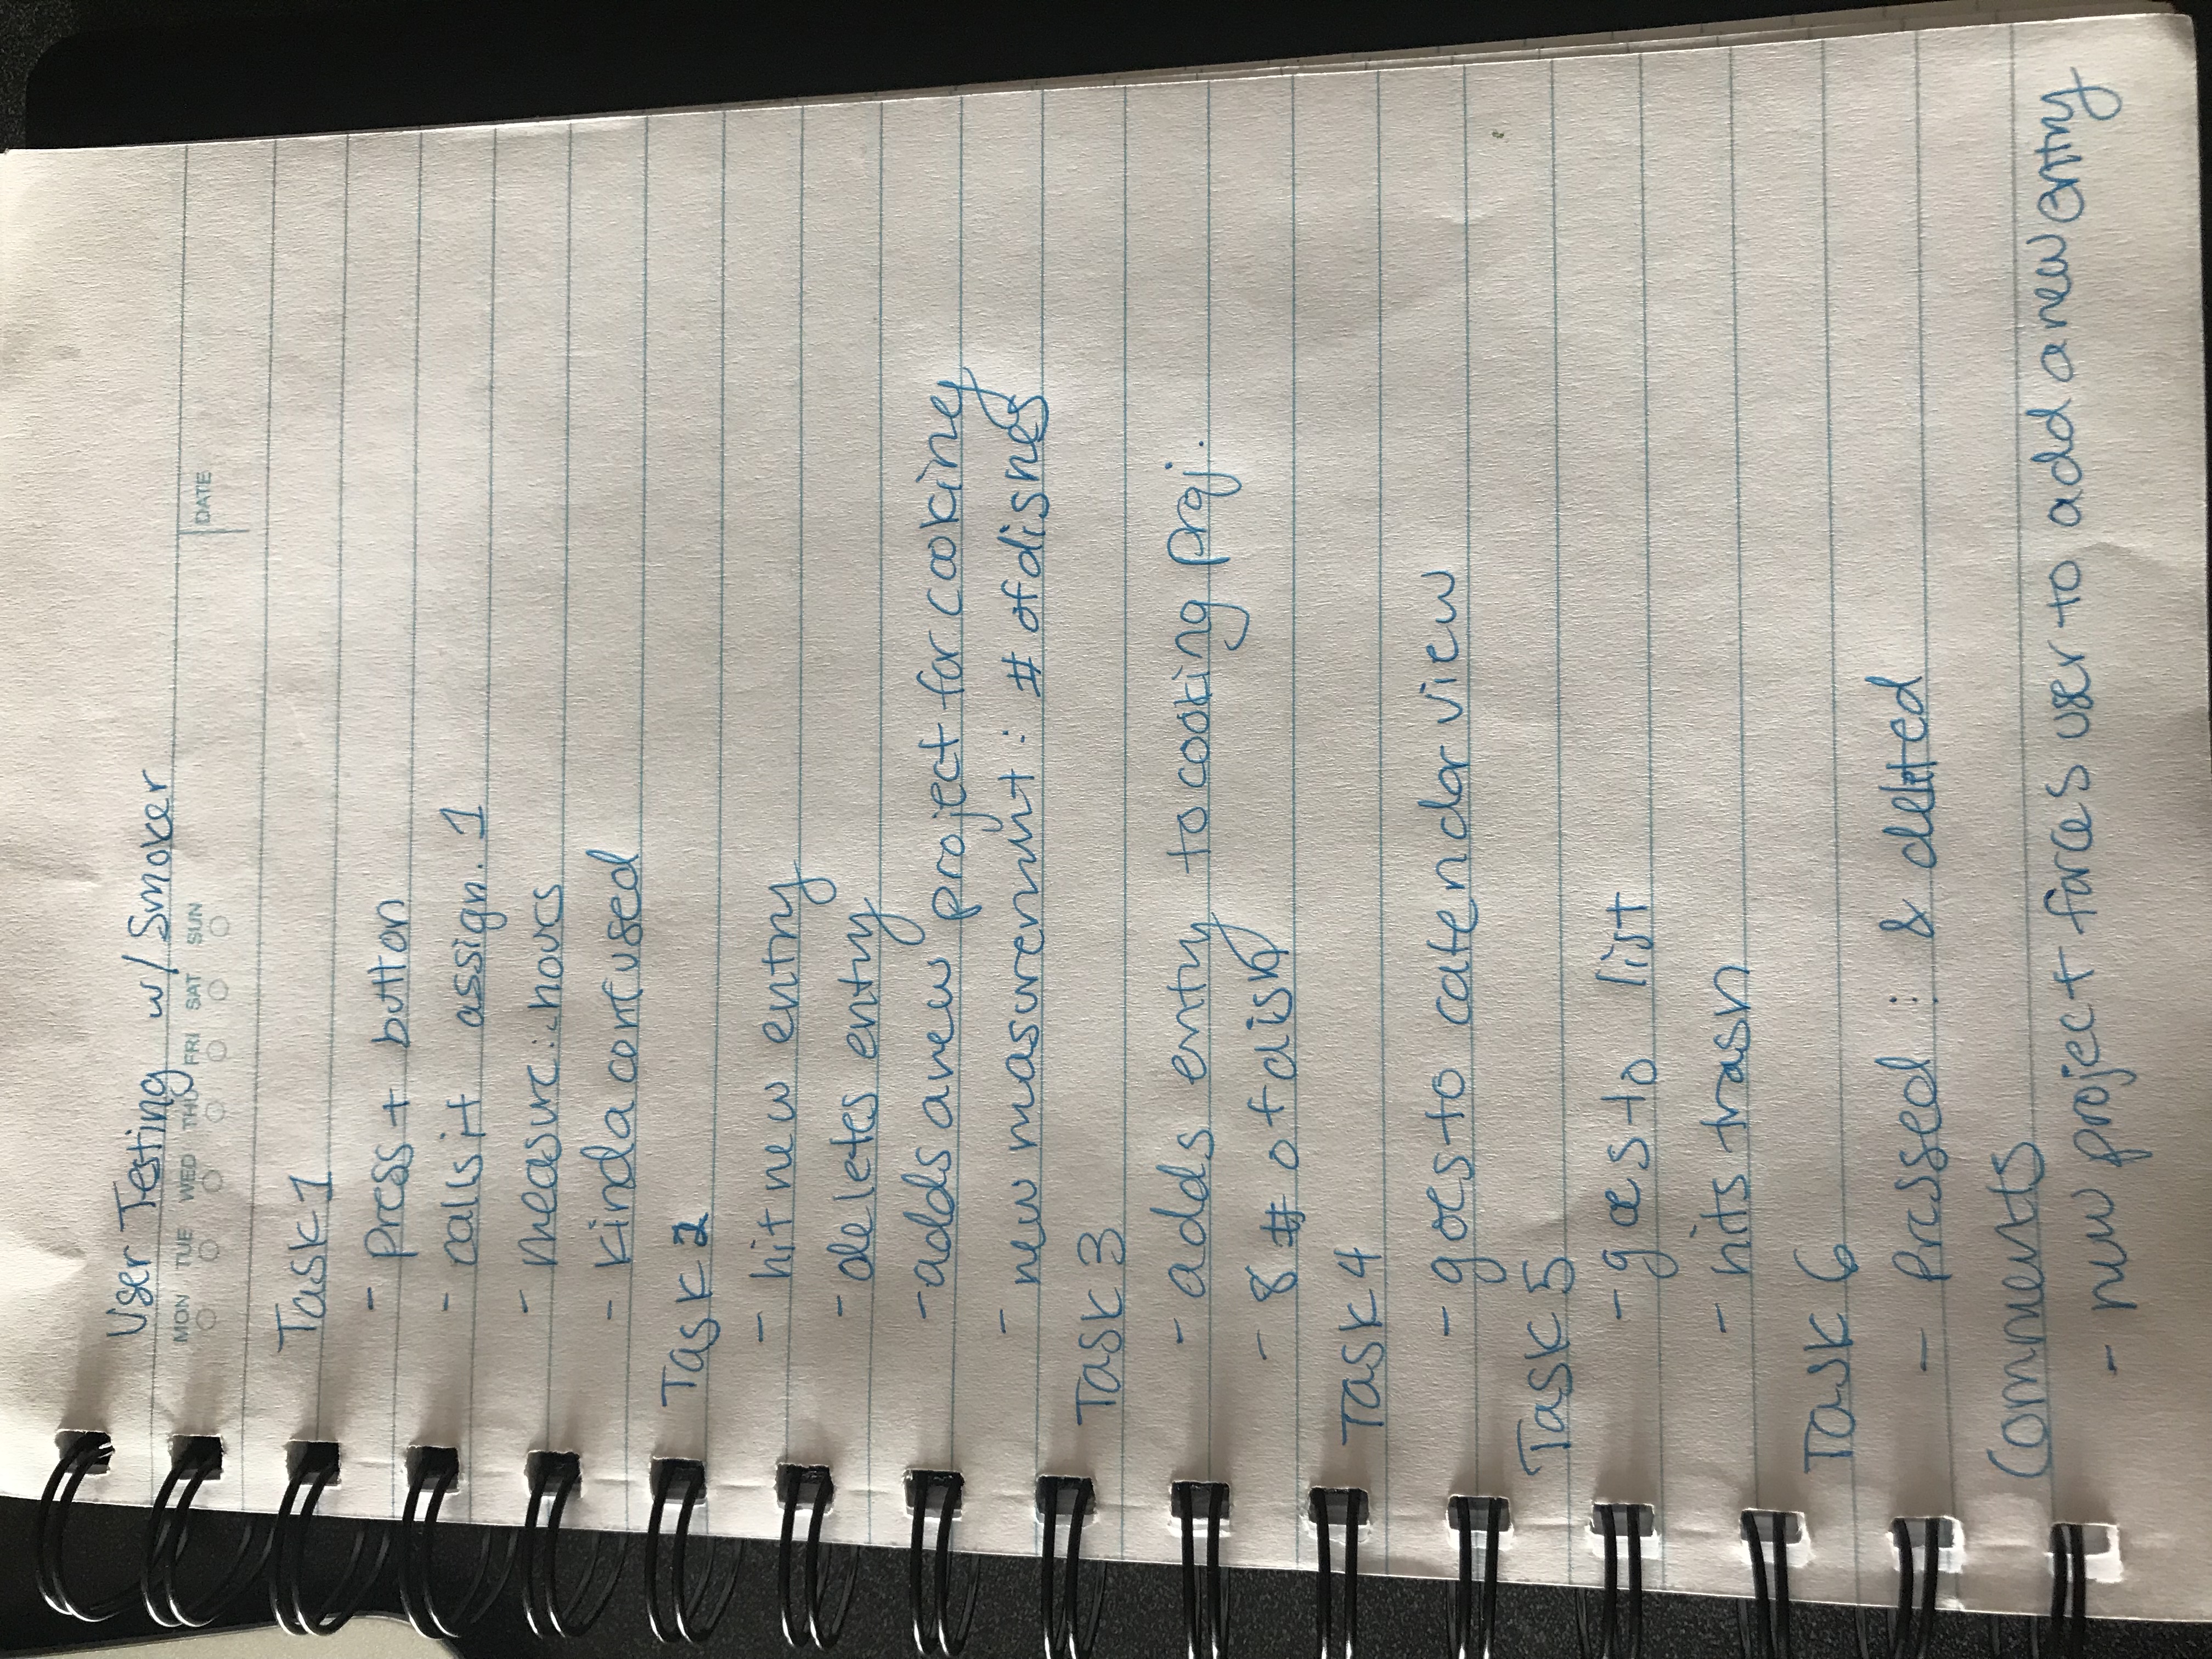 User Testing w/ Smoker
MON TUE WED THU FRI SAT SUN DATE
Task 1
- press + button
- calls it assign. 1
- measure: hours
- kinda confused
Task 2
- hit new entry
- deletes entry
- adds a new project for cooking
- new masurement: # of dishes
Task 3
- adds entry to cooking proj.
- 8 # of dish
Task 4
- goes to calendar view
Task 5
- goes to list
- hits trash
Task 6
- pressed : & deleted
Comments
- new project forces user to add a new entry